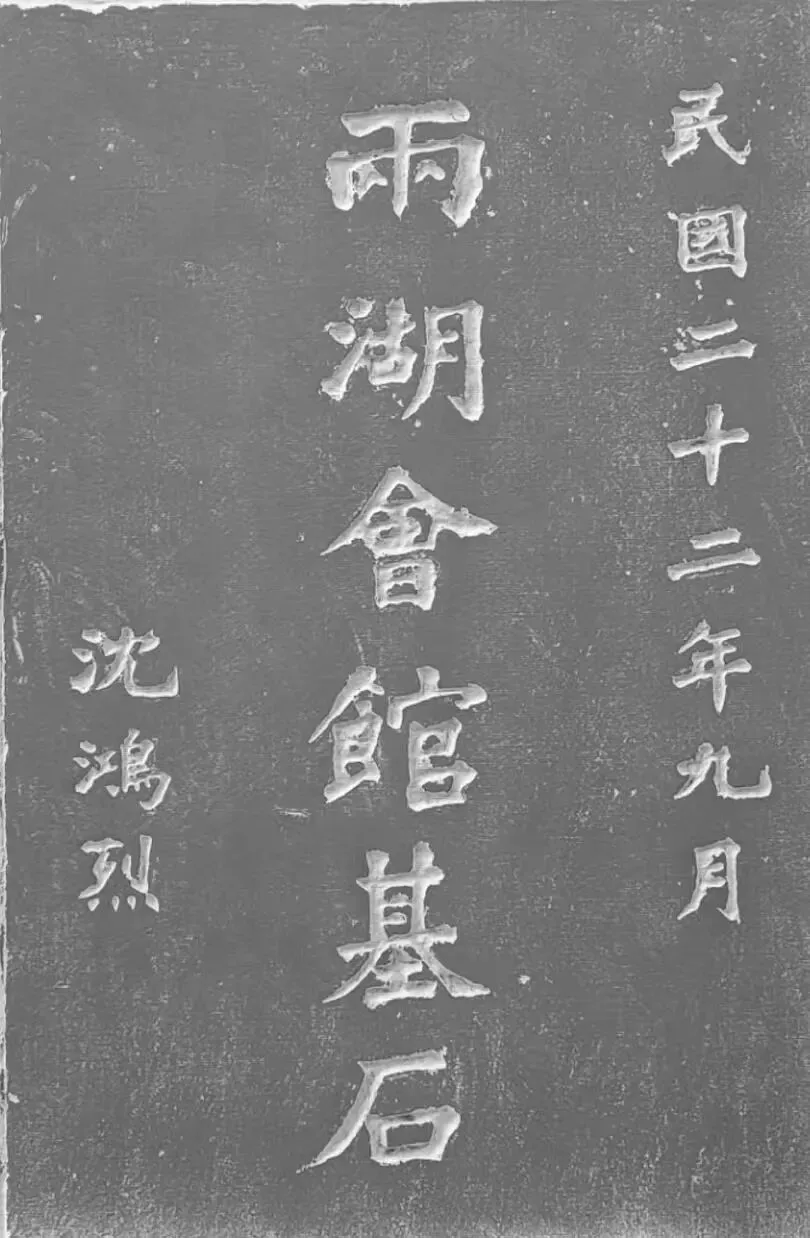 民國二十二年九月
兩湖會館基石
沈鴻烈